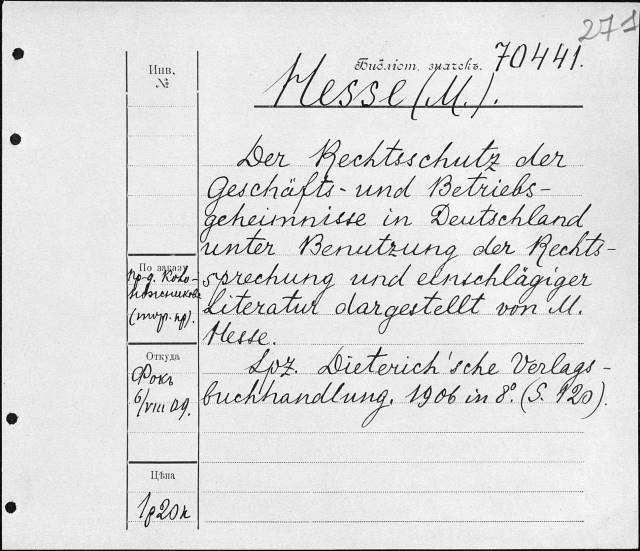 271
Библіот. значекъ. 70441.
Инв.
№
Hesse (M.).
Der Rechtsschutz der
Geschäfts- und Betriebs-
geheimnisse in Deutschland
unter Benutzung der Rechts-
sprechung und einschlägiger
Literatur dargestellt von M.
Hesse.
Lpz. Dieterich'sche Verlags-
buchhandlung. 1906 in 8°. (S. 120).
По заказу
пр-д. Коко-
(тор. пр).
Откуда
Фокъ
6/VIII 09.
Цѣна
1р 20к